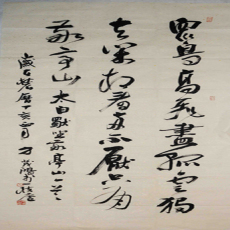 眾鳥高飛盡孤雲獨
去閑相看兩不厭只有
敬亭山 太白獨坐敬亭山一首
歲在舊曆丁亥